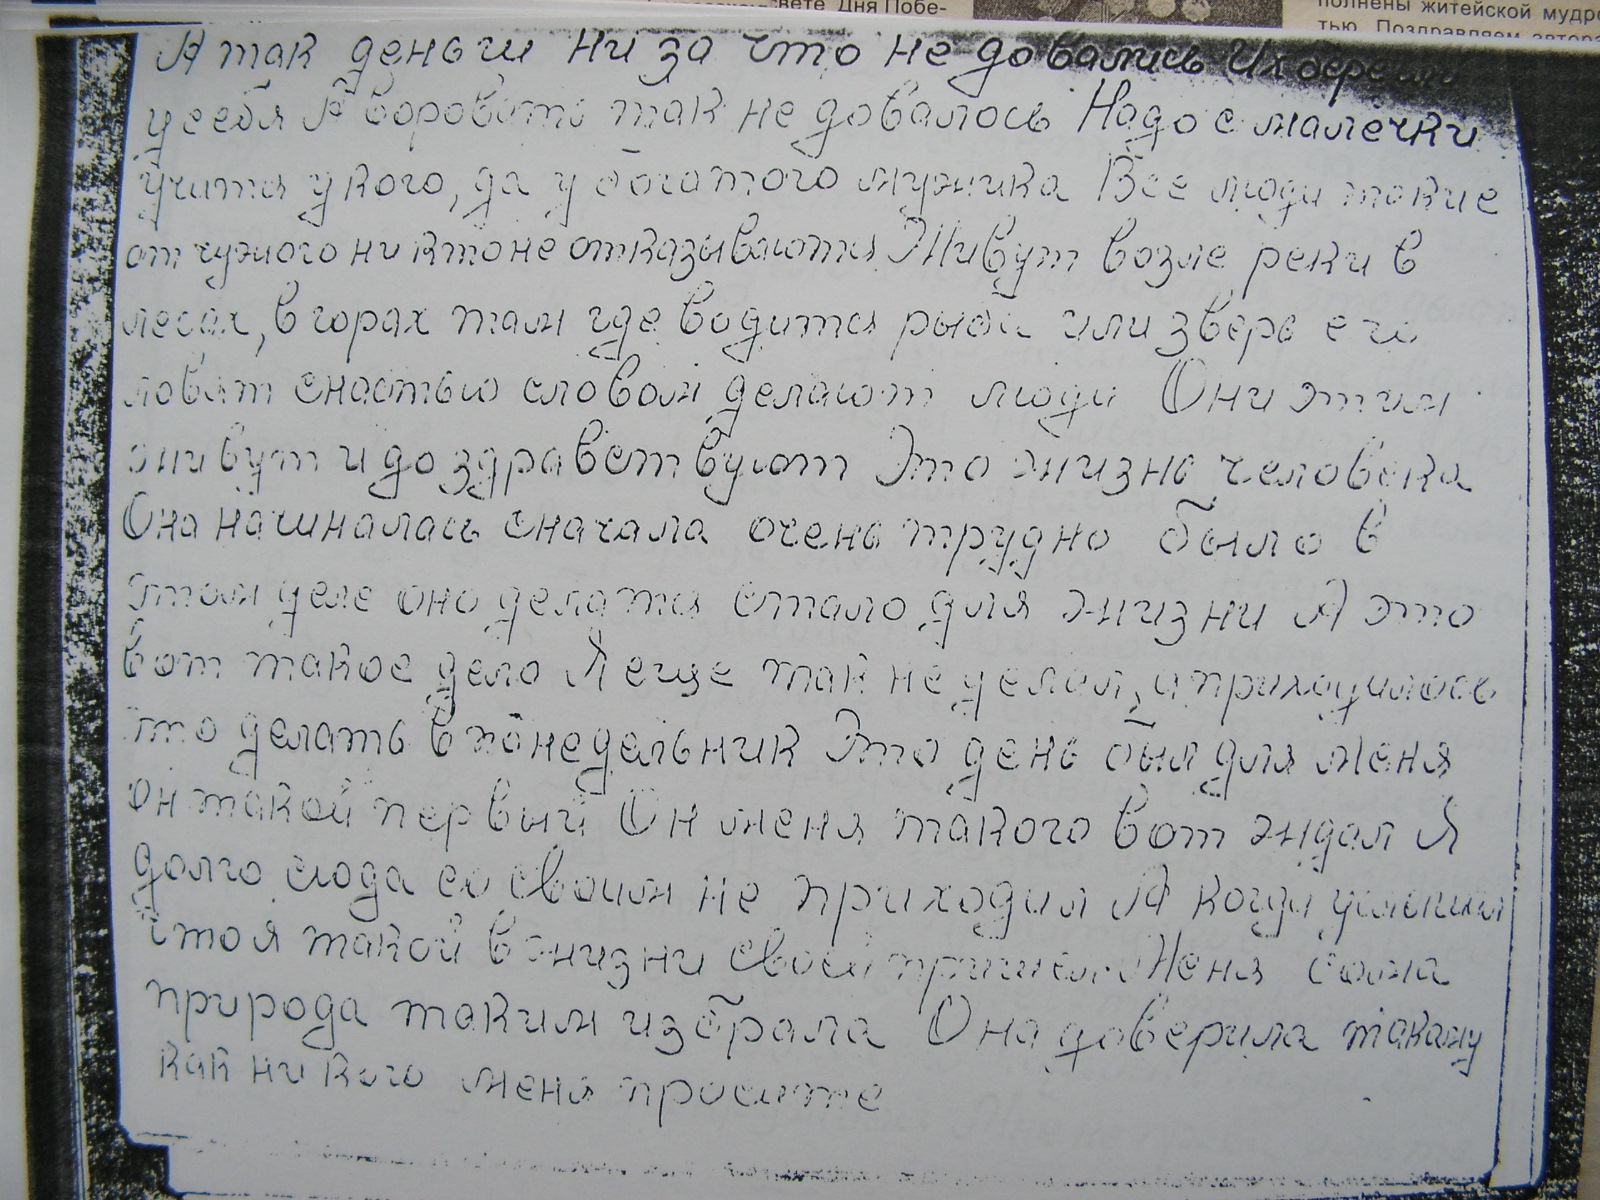 свете Дня Побе-
полнены житейской мудрос
тью. Поздравляем автора
А так деньги ни за что не довались Их берегли
у себя А воровать так не довалось Надо с малечки
учится у кого, да у богатого мужика Все люди такие
от чужого ни кто не отказываются Живут возле реки в
лесах, в горах там где водится рыба или зверь его
ловят снастью словом делают люди Они этим
живут и до здравствуют Это жизнь человека
Она начиналась сначала очень трудно было в
этом деле оно делатся стало для жизни А это
вот такое дело Я еще так не делал, а приходилось
это делать в понедельник Это день был для меня
он такой первый Он меня такого вот ждал Я
долго сюда со своим не приходил А когда услышал
что я такой в жизни своей пришел Меня сама
природа таким избрала Она доверила такаму
как ни кого меня просите